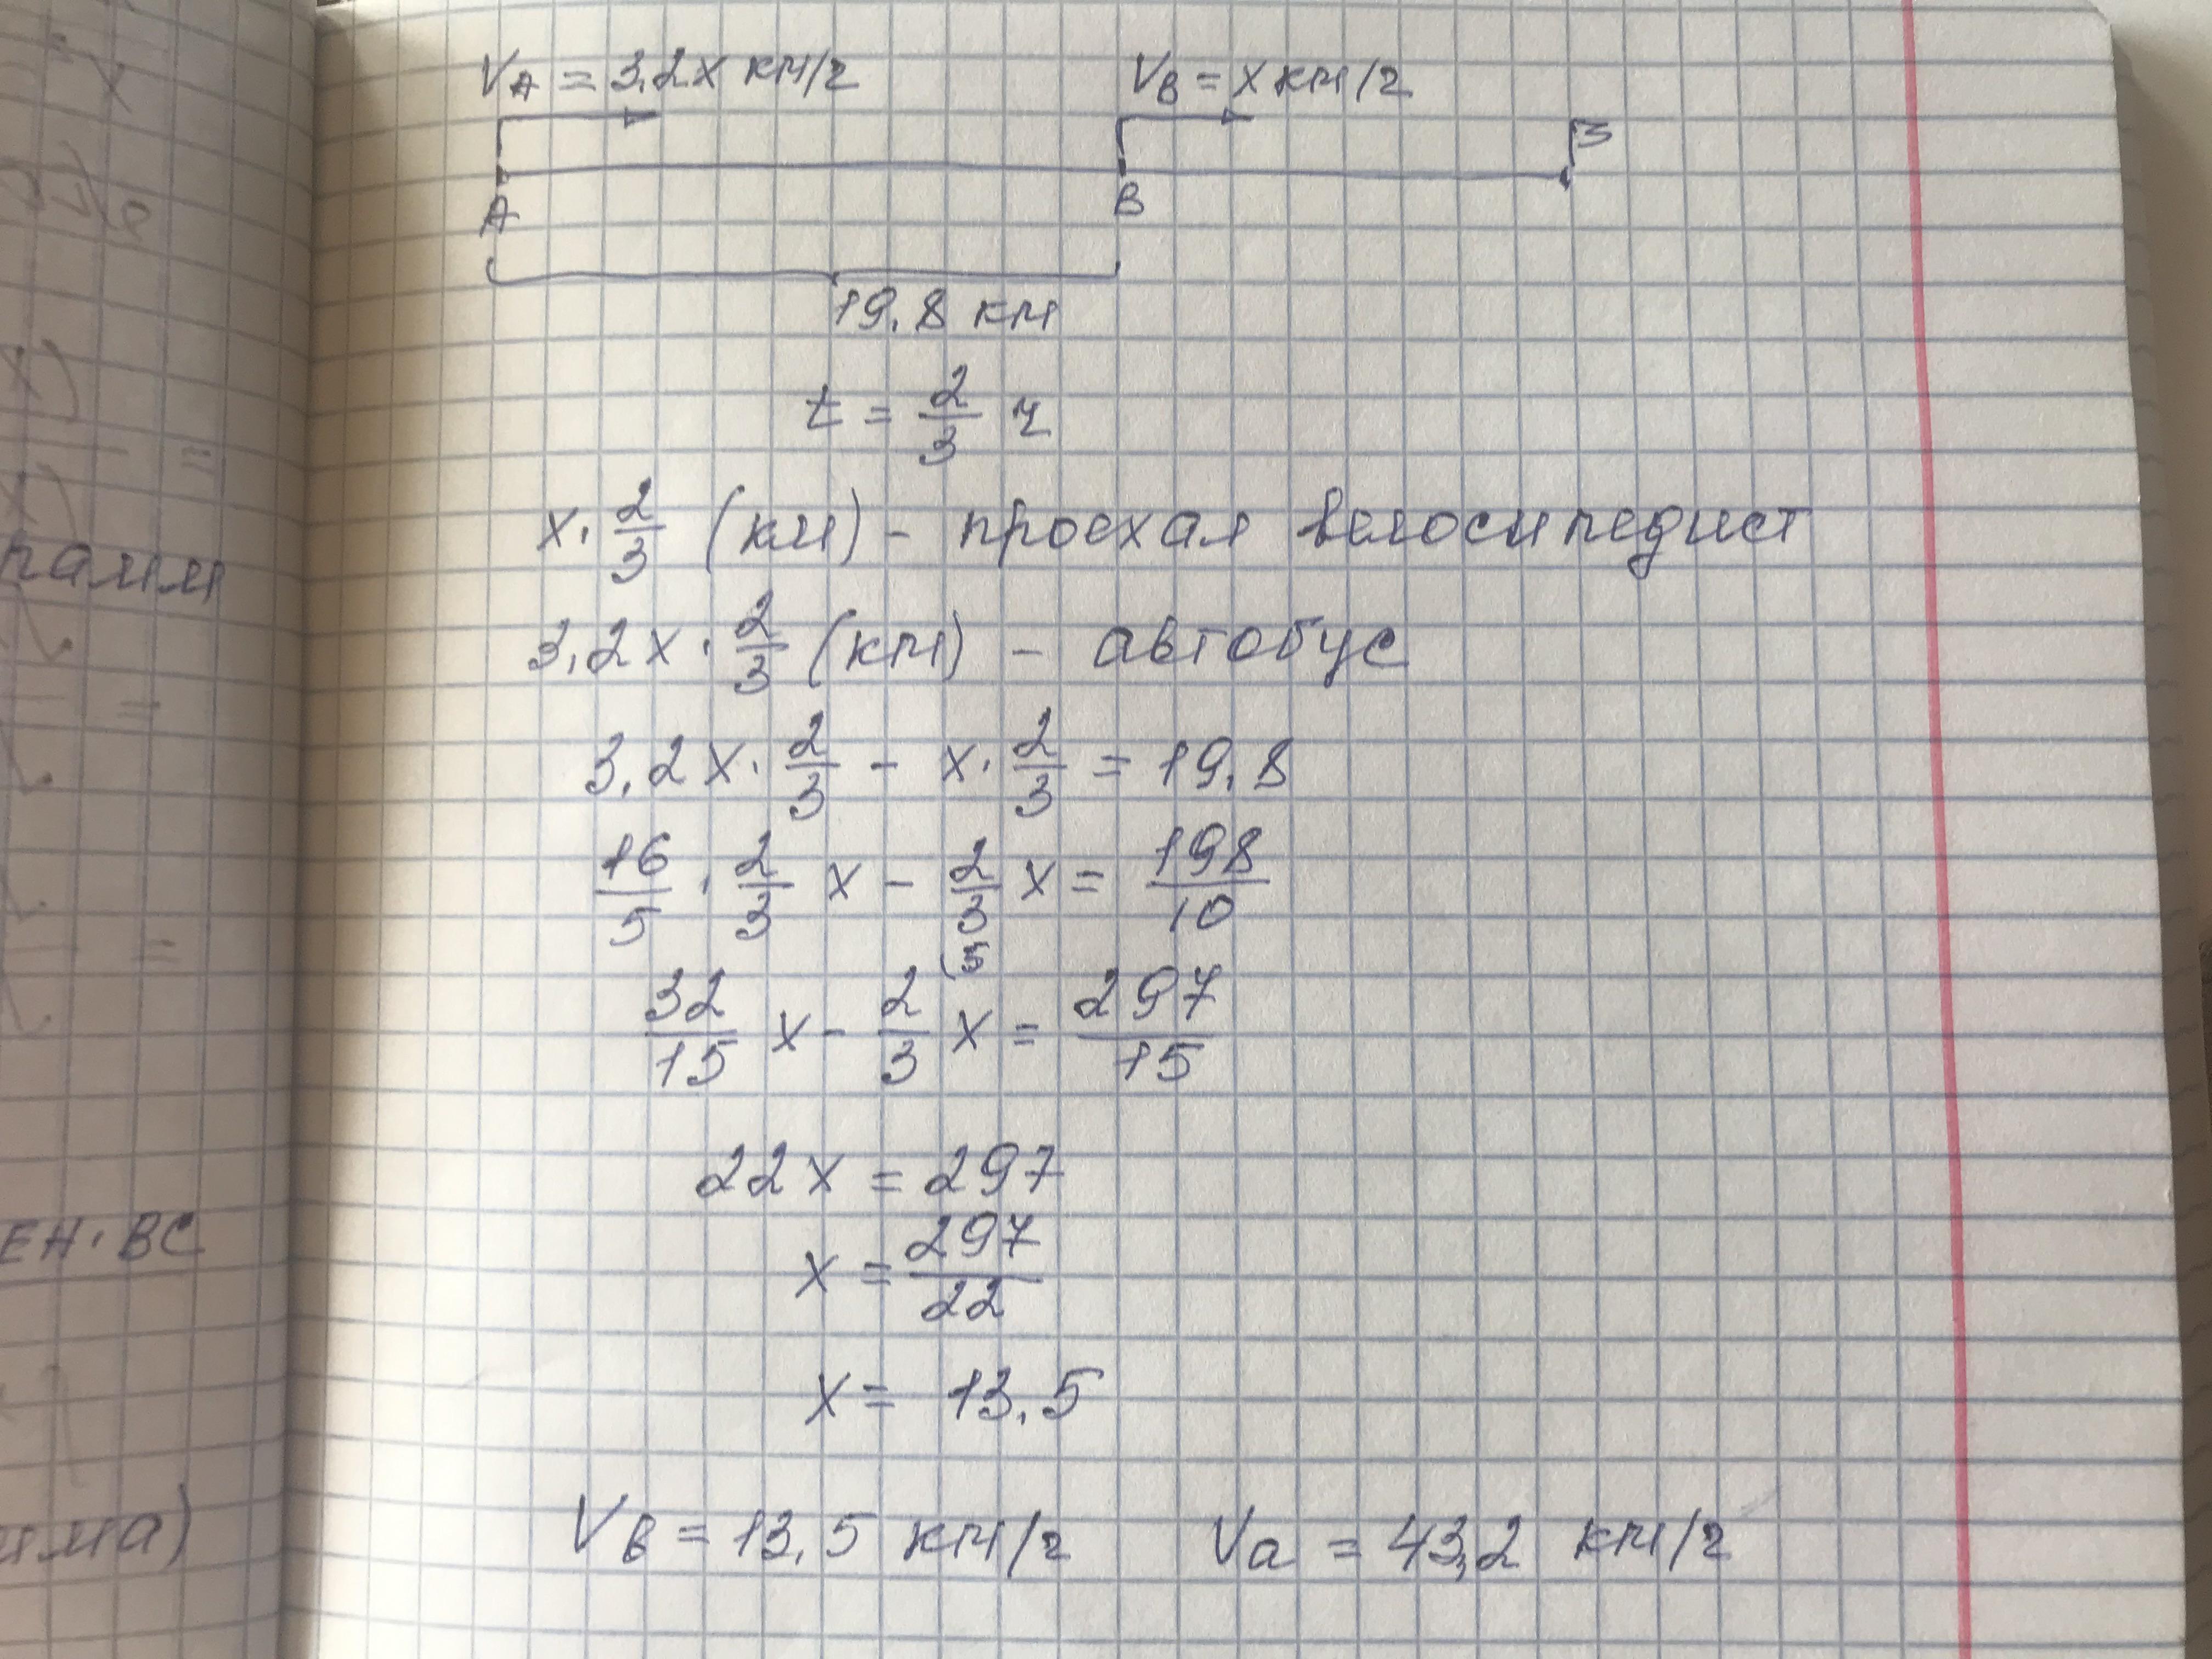 VА = 3,2x км/ч VВ = x км/ч
А В
19,8 км
t = 2/3 ч
x · 2/3 (км) - проехал велосипедист
3,2x · 2/3 (км) - автобус
3,2x · 2/3 - x · 2/3 = 19,8
16/5 · 2/3 x - 2/3 x = 198/10
(5
32/15 x - 2/3 x = 297/15
22x = 297
x = 297/22
x = 13,5
Vв = 13,5 км/ч Va = 43,2 км/ч
ЕН · ВС